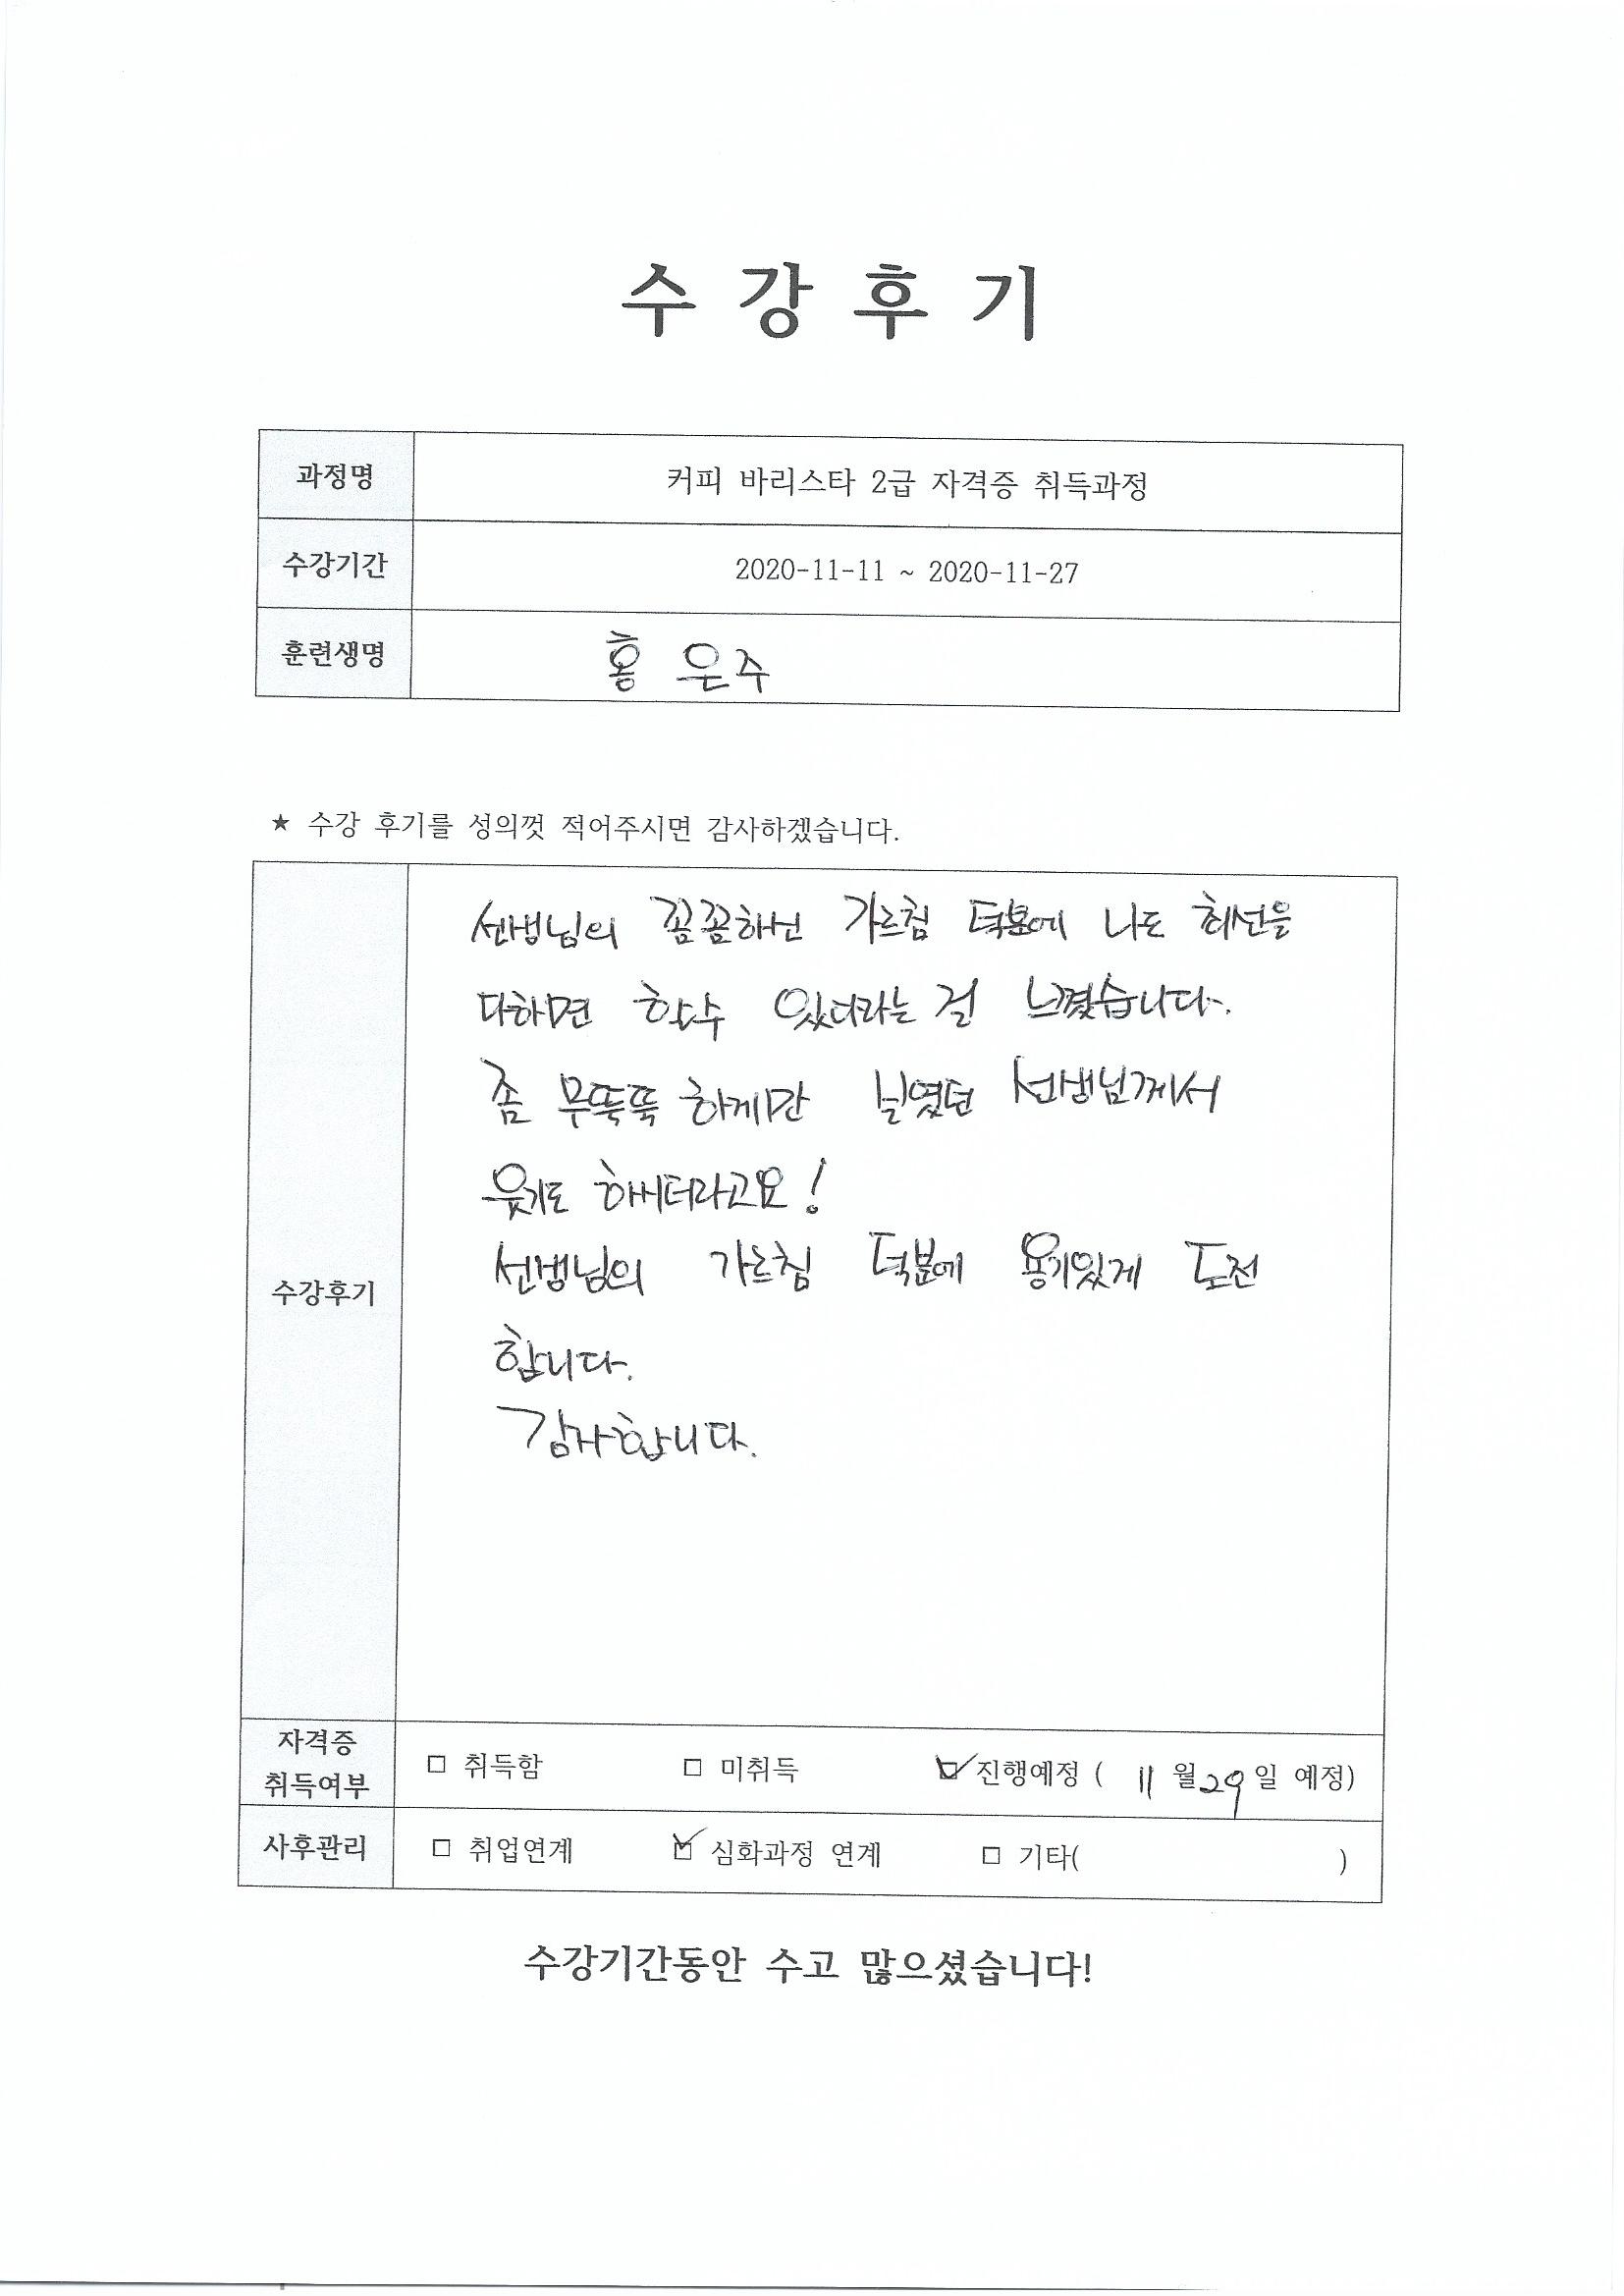 수 강 후 기
과정명 커피 바리스타 2급 자격증 취득과정
수강기간 2020-11-11 ~ 2020-11-27
훈련생명 홍 은주
★ 수강 후기를 성의껏 적어주시면 감사하겠습니다.
수강후기
선생님의 꼼꼼하신 가르침 덕분에 나도 최선을
다하면 할수 있더라는 걸 느꼈습니다.
좀 무뚝뚝 하게만 보였던 선생님께서
웃기도 하시더라고요!
선생님의 가르침 덕분에 용기있게 도전
합니다.
감사합니다.
자격증
취득여부 □ 취득함 □ 미취득 ☑ 진행예정 ( 11 월 29 일 예정)
사후관리 □ 취업연계 ☑ 심화과정 연계 □ 기타( )
수강기간동안 수고 많으셨습니다!